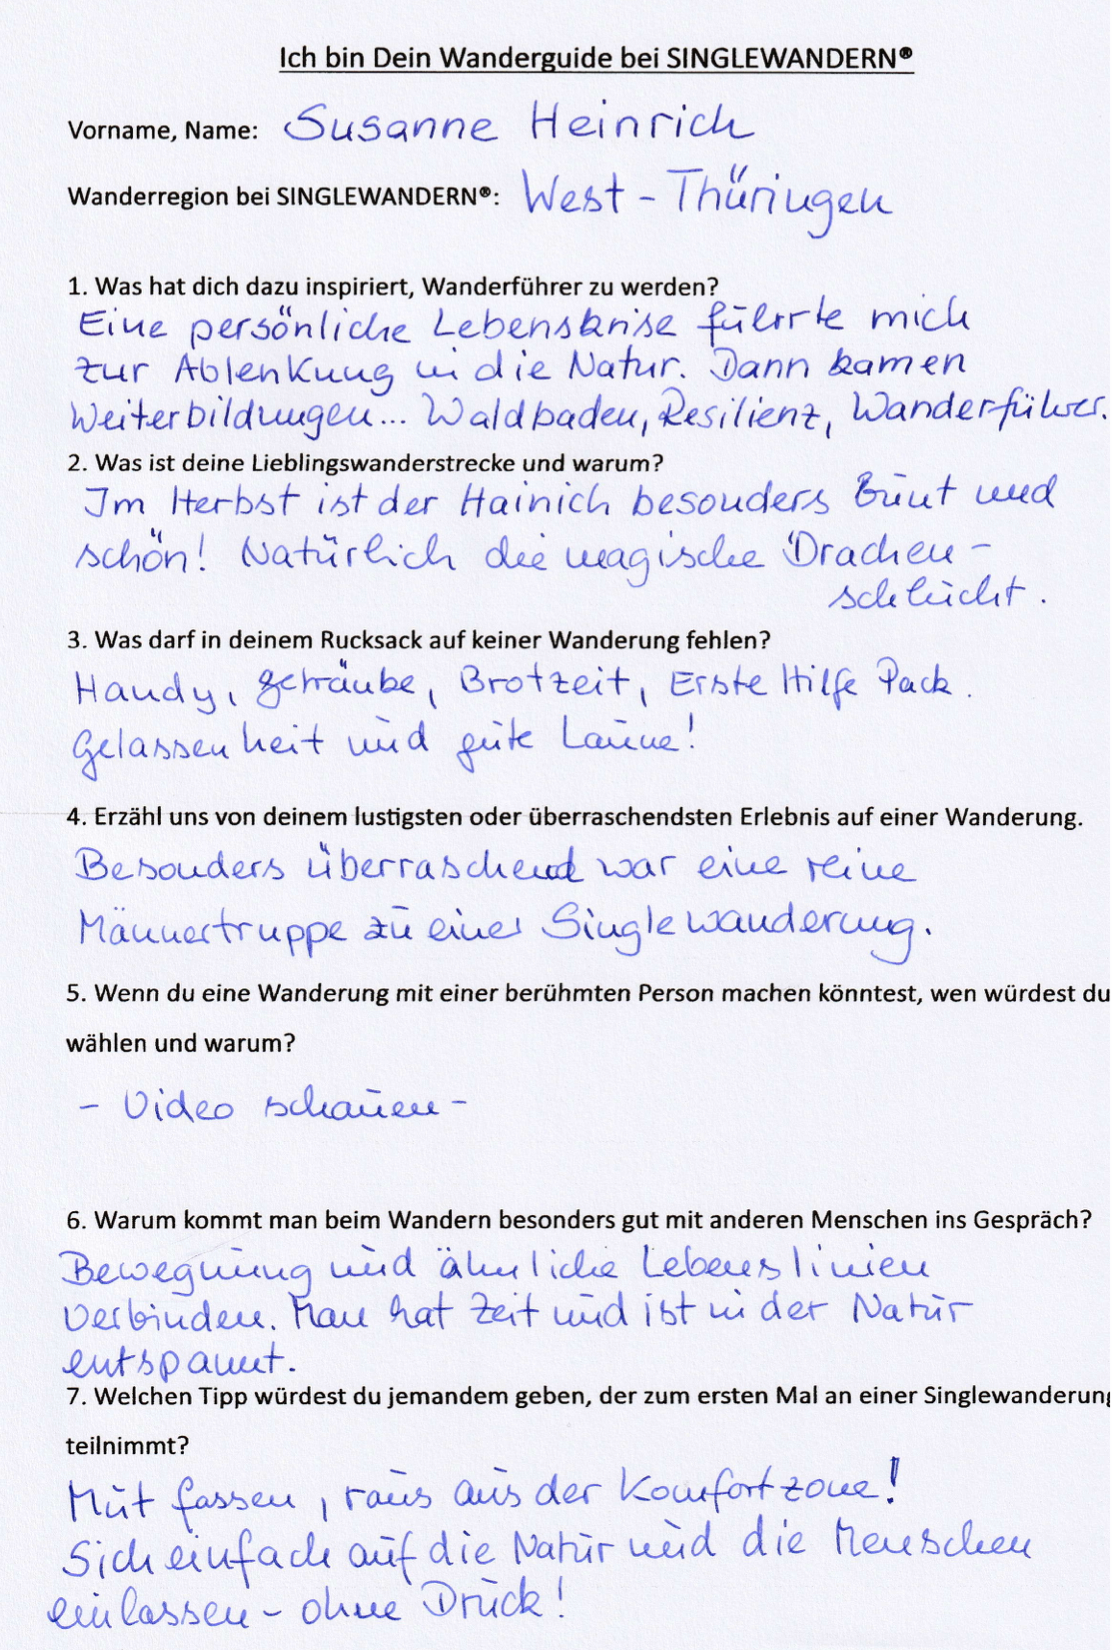 Ich bin Dein Wanderguide bei SINGLEWANDERN®
Vorname, Name: Susanne Heinrich
Wanderregion bei SINGLEWANDERN®: West-Thüringen
1. Was hat dich dazu inspiriert, Wanderführer zu werden?
Eine persönliche Lebenskrise führte mich
zur Ablenkung in die Natur. Dann kamen
Weiterbildungen... Waldbaden, Resilienz, Wanderführer.
2. Was ist deine Lieblingswanderstrecke und warum?
Im Herbst ist der Hainich besonders bunt und
schön! Natürlich die magische Drachen-
schlucht.
3. Was darf in deinem Rucksack auf keiner Wanderung fehlen?
Handy, Getränke, Brotzeit, Erste Hilfe Pack.
Gelassenheit und gute Laune!
4. Erzähl uns von deinem lustigsten oder überraschendsten Erlebnis auf einer Wanderung.
Besonders überraschend war eine reine
Männertruppe zu einer Singlewanderung.
5. Wenn du eine Wanderung mit einer berühmten Person machen könntest, wen würdest du
wählen und warum?
- Video schauen -
6. Warum kommt man beim Wandern besonders gut mit anderen Menschen ins Gespräch?
Bewegung und ähnliche Lebenslinien
verbinden. Man hat Zeit und ist in der Natur
entspannt.
7. Welchen Tipp würdest du jemandem geben, der zum ersten Mal an einer Singlewanderung
teilnimmt?
Mut fassen, raus aus der Komfortzone!
Sich einfach auf die Natur und die Menschen
einlassen - ohne Druck!